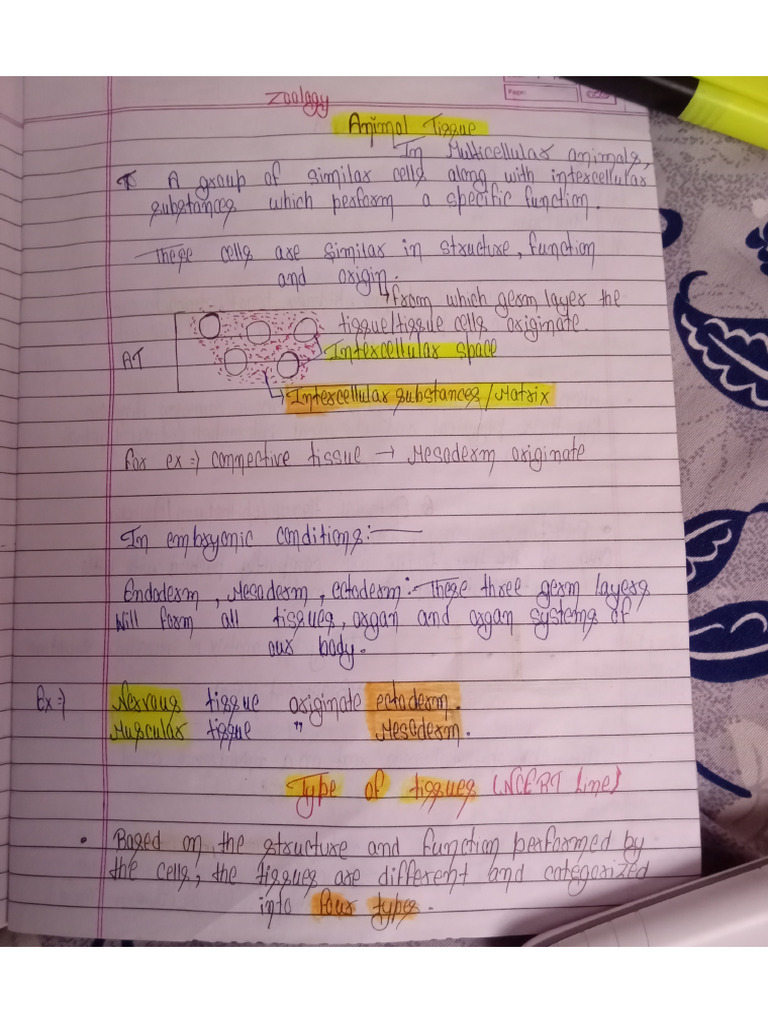 Page:
Zoology
Animal Tissue
In Multicellular animals,
A group of similar cells along with intercellular
substances which perform a specific function.
These cells are similar in structure, function
and origin.
↳ from which germ layer the
tissue/tissue cells originate.
Intercellular space
AT
Intercellular substances / Matrix
For ex ⇒ connective tissue → Mesoderm originate
In embryonic conditions:—
Endoderm, Mesoderm, ectoderm:- These three germ layers
will form all tissues, organ and organ systems of
our body.
Ex ⇒ Nervous tissue originate ectoderm.
Muscular tissue " Mesoderm.
Type of tissues (NCERT Line)
• Based on the structure and function performed by
the cells, the tissues are different and categorized
into four types.